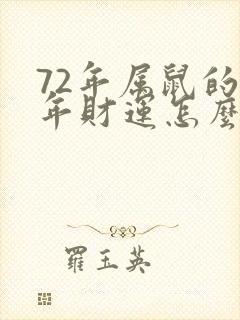 72年属鼠的
年财运怎麼
羅玉英